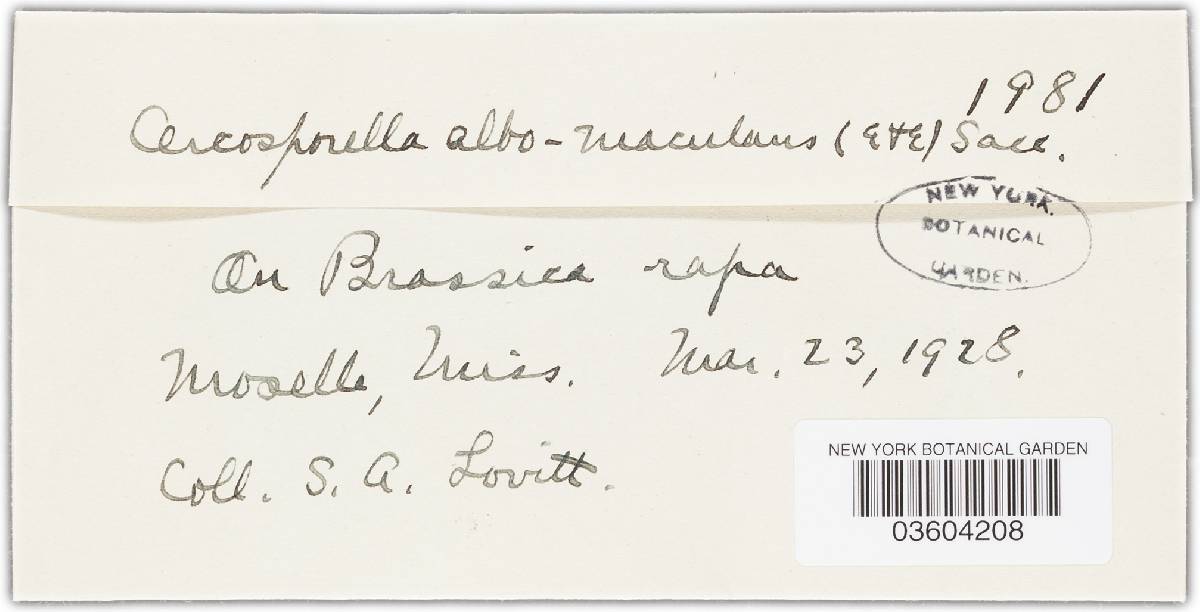 1981
Cercosporella albo-maculans (E+E) Sacc.
NEW YORK
BOTANICAL
GARDEN.
On Brassica rapa
Moselle, Miss. Mar. 23, 1928.
Coll. S. A. Lovitt.
NEW YORK BOTANICAL GARDEN
03604208